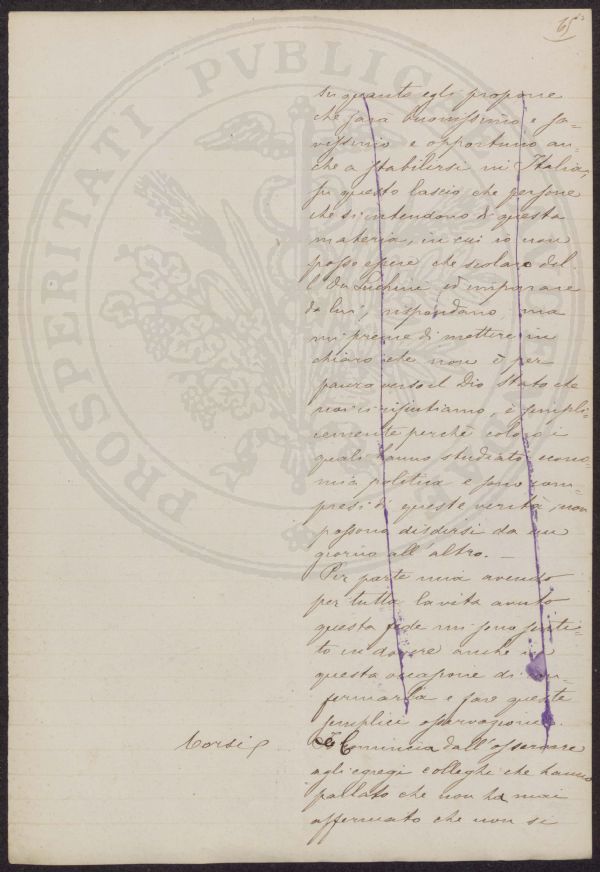 65
su quanto egli propone
che sarà buonissimo e sa=
vissimo e opportuno an=
che a stabilirsi in Italia,
su questo lascio che persone
che si intendono di questa
materia, in cui io non
posso essere che scolaro del=
l' On Luchini ed imparare
da lui, rispondano ma
mi preme di mettere in
chiaro che non è per
paura verso il Dio Stato che
noi ci rifiutiamo, è sempli=
cemente perchè coloro i
quali hanno studiato econo=
mia politica e sono com=
presi di queste verità, non
possono disdirsi da un
giorno all'altro. —
Per parte mia avendo
per tutta la vita avuto
questa fede mi sono senti=
to in dovere anche in
questa occasione di con=
fermarla e fare queste
semplici osservazioni.
Corsi
Comincia dall'osservare
agli egregi colleghi che hanno
parlato che non ha mai
affermato che non si
PROSPERITATI PVBLICAE